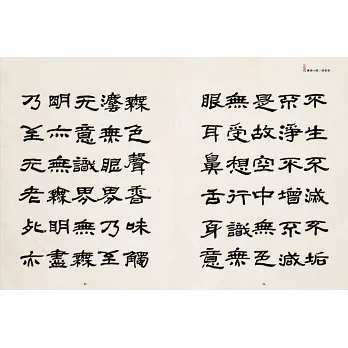 不生不滅不垢
不淨不增不減
是故空中無色
無受想行識無
眼耳鼻舌身意
無色聲香味觸
灋無眼界乃至
无意識界無無
明亦無無明盡
乃至无老死亦